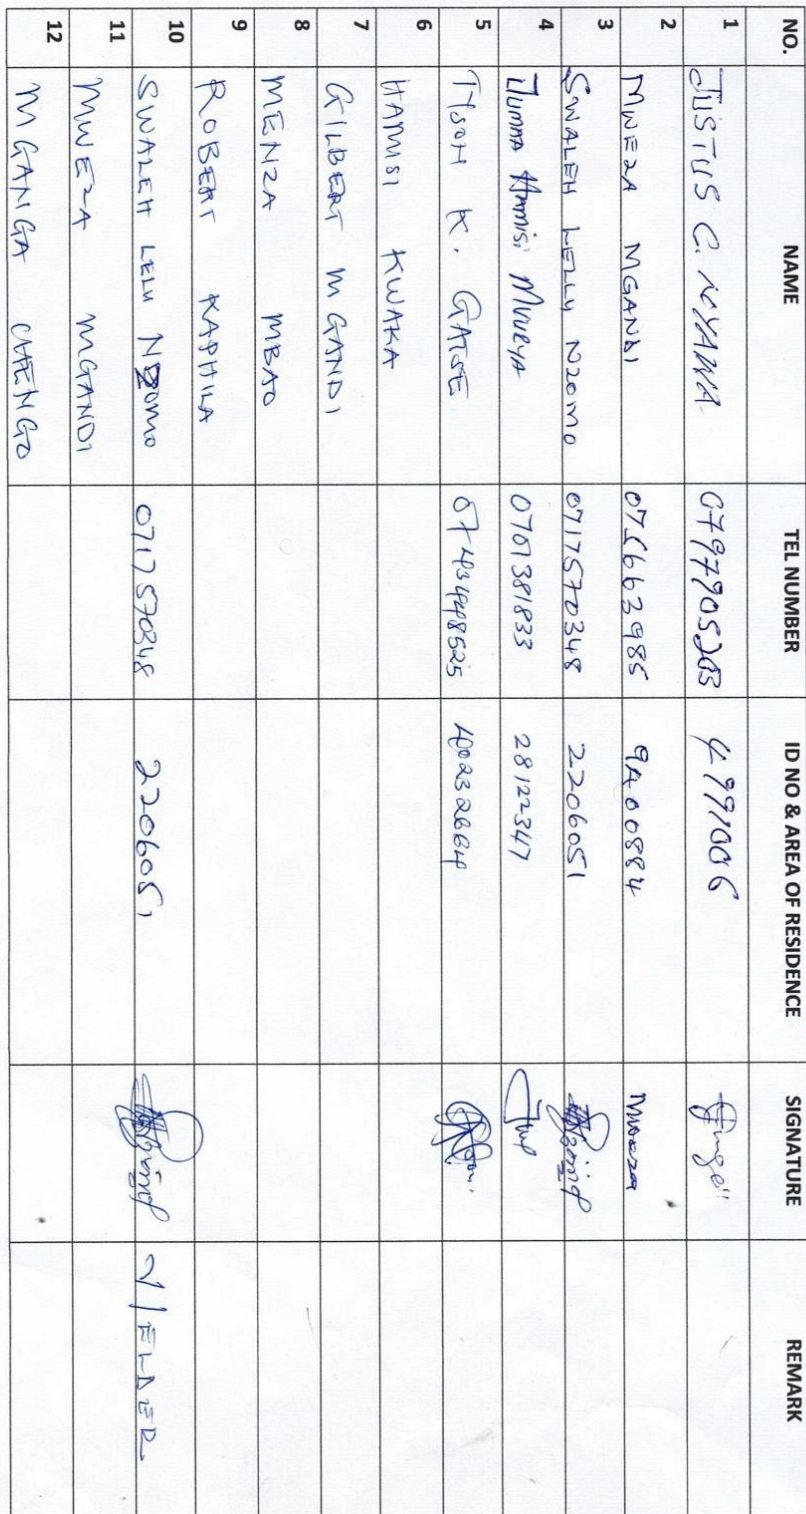 NO. NAME TEL NUMBER ID NO & AREA OF RESIDENCE SIGNATURE REMARK
1 JUSTUS C. NYAWA 0797905203 4991006
2 MWEZA MGANDI 0756663985 9400884 Mweza
3 SWALEH LELLY NZOMO 0717570348 2206051
4 Jumma Hamisi Mvurya 0701381833 28122347
5 TYSON K. GATSE 0743448525
6 HAMISI KWAKA
7 GILBERT MGANDI
8 MENZA MBAO
9 ROBERT KAPHILA
10 SWALEH LELU NZOMO 0717570348 2206051 V/ELDER
11 MWEZA MGANDI
12 MGANGA CHENGO